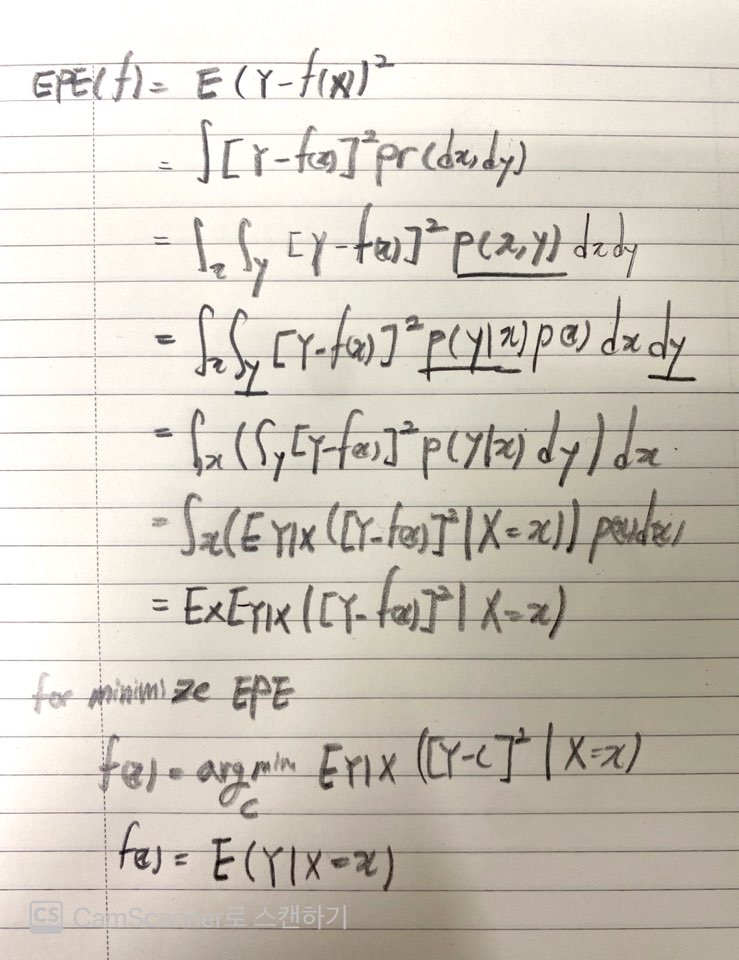 EPE(f) = E(Y-f(X))²
= ∫[Y-f(x)]² pr(dx,dy)
= ∫x ∫y [Y-f(x)]² p(x,y) dxdy
= ∫x ∫y [Y-f(x)]² p(y|x) p(x) dx dy
= ∫x (∫y [Y-f(x)]² p(y|x) dy) dx.
= ∫x (E Y|X ([Y-f(x)]² | X=x)) p(x)dx
= EX EY|X ([Y-f(x)]² | X=x)
for minimize EPE
f(x) = arg min c EY|X ([Y-c]² | X=x)
f(x) = E(Y|X=x)
CS CamScanner로 스캔하기